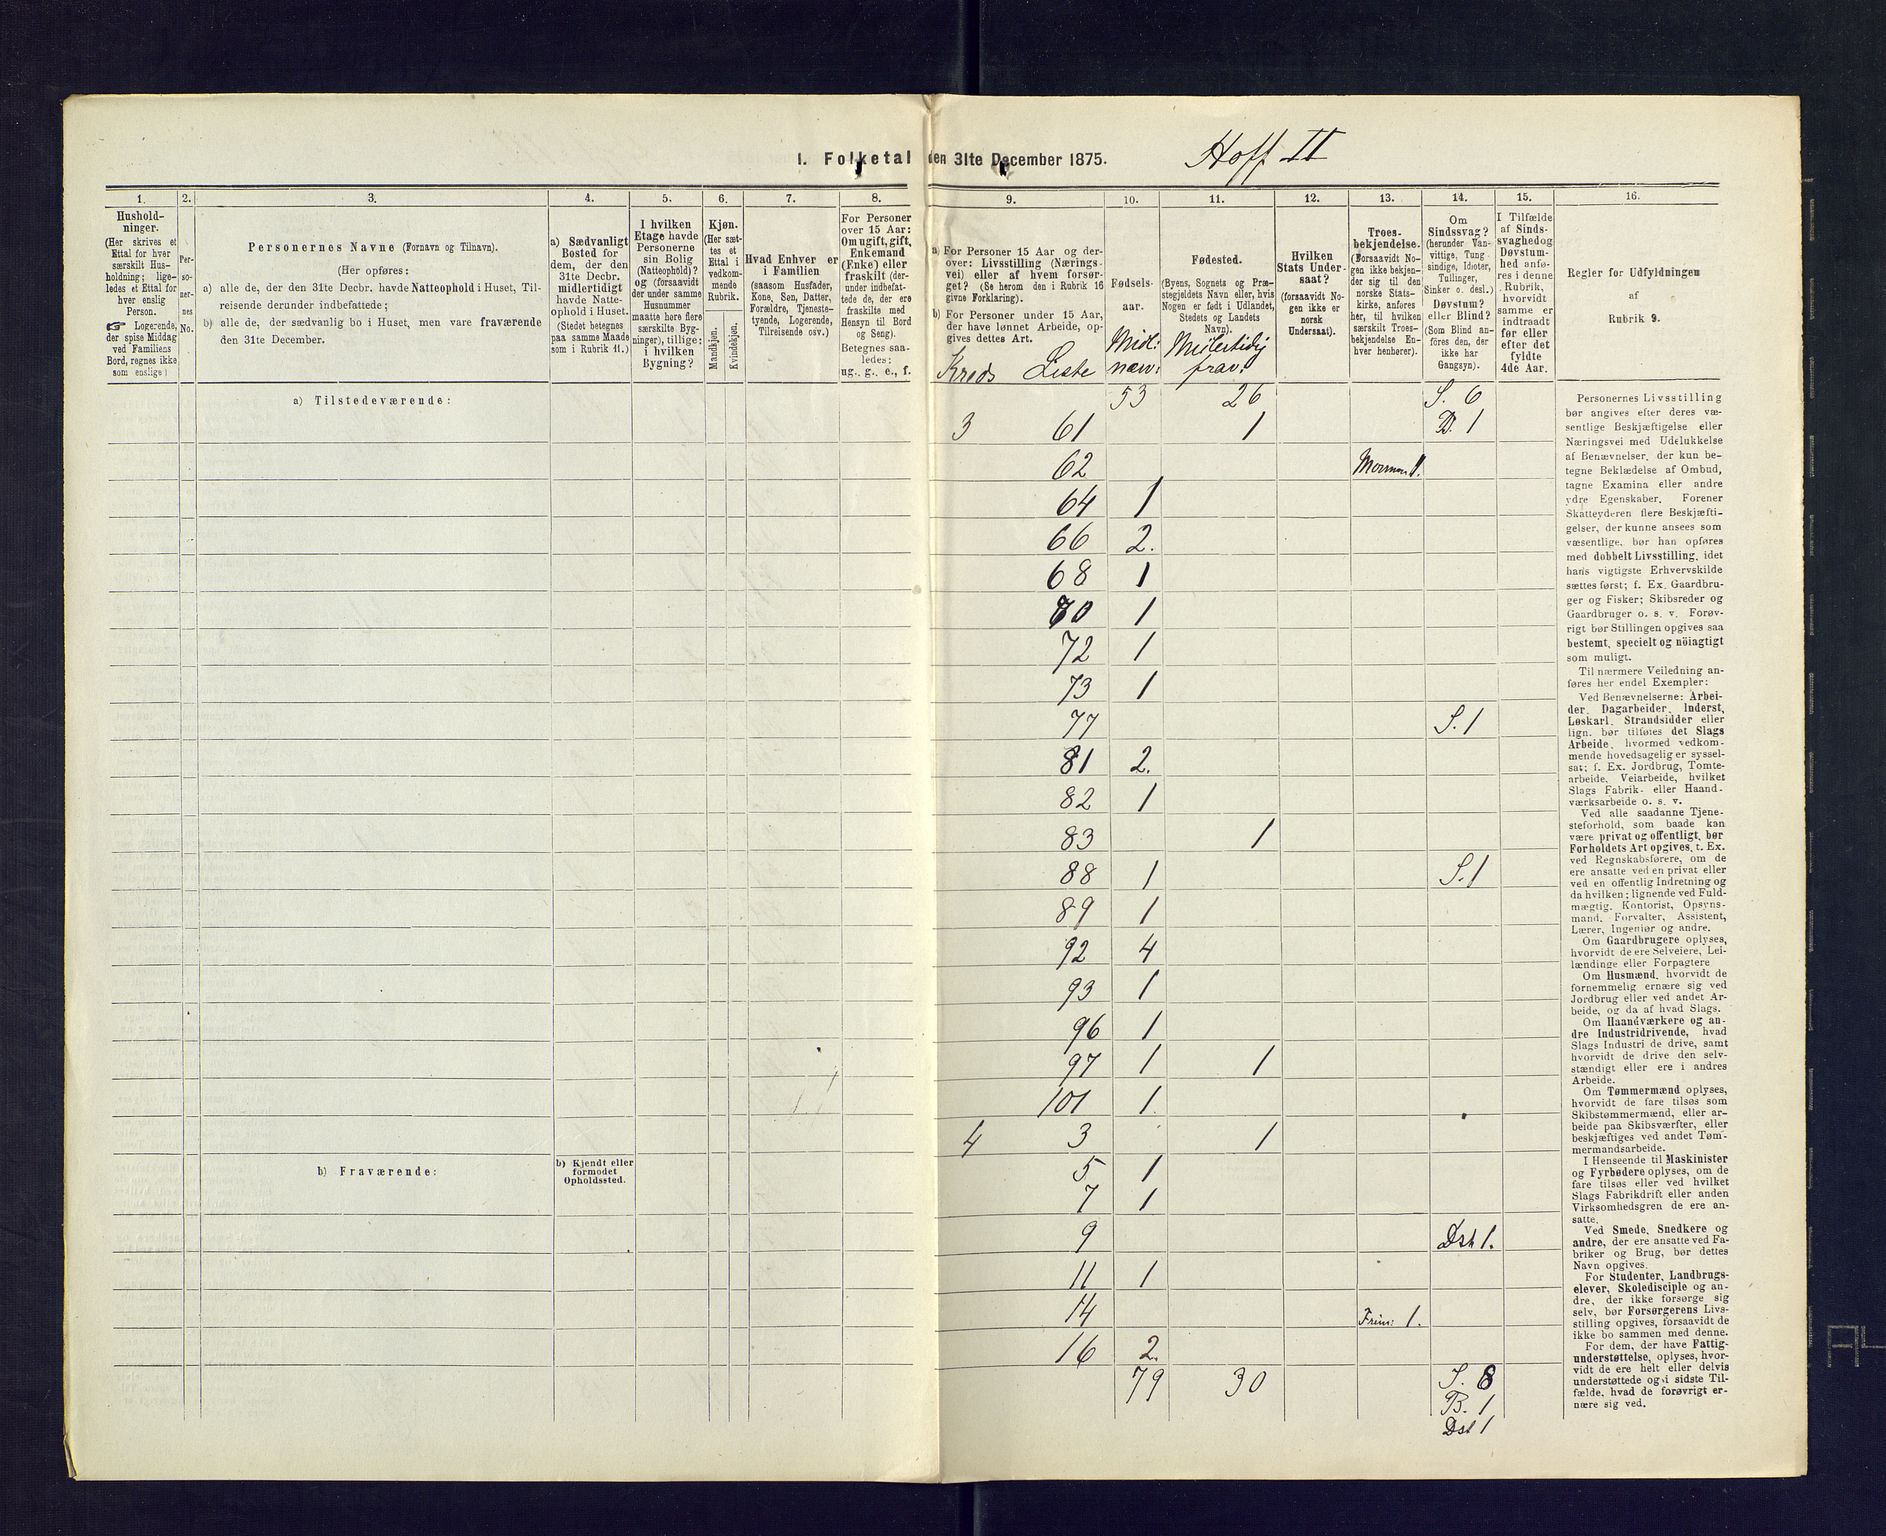 1. Folketal den 31te December 1875.
Hoff II
1.
2.
3.
4.
5.
6.
7.
8.
9.
10.
11.
12.
13.
14.
15.
16.
Hushold-
ninger.
(Her skrives et
Ettal for hver
særskilt Hus-
holdning; lige-
ledes et Ettal for
hver enslig
Person.
☞ Logerende,
der spise Middag
ved Familiens
Bord, regnes ikke
som enslige.)
Per-
so-
ner-
nes
No.
Personernes Navne (Fornavn og Tilnavn).
(Her opføres:
a) alle de, der den 31te Decbr. havde Natteophold i Huset, Til-
reisende derunder indbefattede;
b) alle de, der sædvanlig bo i Huset, men vare fraværende
den 31te December.
a) Sædvanligt
Bosted for
dem, der den
31te Decbr.
midlertidigt
havde Natte-
ophold i Huset.
(Stedet betegnes
paa samme Maade
som i Rubrik 11.)
I hvilken
Etage havde
Personerne
sin Bolig
(Natteophold)?
og (forsaavidt
der under samme
Husnummer
maatte høre flere
særskilte Byg-
ninger), tillige:
i hvilken
Bygning?
Kjøn.
(Her sæt-
tes et
Ettal i
vedkom-
mende
Rubrik.
Mandkjøn.
Kvindekjøn.
Hvad Enhver er
i Familien
(saasom Husfader,
Kone, Søn, Datter,
Forældre, Tjeneste-
tyende, Logerende,
Tilreisende osv.)
For Personer
over 15 Aar:
Om ugift, gift,
Enkemand
(Enke) eller
fraskilt (der-
under indbefat-
tede de, der ere
fraskilte med
Hensyn til Bord
og Seng).
Betegnes saa-
ledes:
ug., g., e., f.
a) For Personer 15 Aar og der-
over: Livsstilling (Nærings-
vei) eller af hvem forsør-
get? (Se herom den i Rubrik 16
givne Forklaring).
b) For Personer under 15 Aar,
der have lønnet Arbeide, op-
gives dettes Art.
Kreds Liste
Fødsels-
aar.
Midl:
nærv:
Fødested.
(Byens, Sognets og Præ-
stegjeldets Navn eller, hvis
Nogen er født i Udlandet,
Stedets og Landets
Navn).
Midlertidig
frav:
Hvilken
Stats Under-
saat?
(forsaavidt No-
gen ikke er
norsk
Undersaat).
Troes-
bekjendelse.
(Forsaavidt No-
gen ikke bekjen-
der sig til den
norske Stats-
kirke, anføres
her, til hvilken
særskilt Troes-
bekjendelse En-
hver henhører).
Om
Sindssvag?
(herunder Van-
vittige, Tung-
sindige, Idioter,
Tullinger,
Sinker o. desl.)
Døvstum?
eller Blind?
(Som Blind an-
føres den, der
ikke har
Gangsyn).
I Tilfælde
af Sinds-
svaghed og
Døvstum-
hed anfø-
res i denne
Rubrik,
hvorvidt
samme er
indtraadt
før eller
efter det
fyldte
4de Aar.
Regler for Udfyldningen
af
Rubrik 9.
a) Tilstedeværende:
53 26 S. 6
3 61 1 B. 1
62 Mormon 1.
64 1
66 2.
68 1
70 1
72 1
73 1
77 S. 1
81 2.
82 1
83 1
88 1 S. 1
89 1
92 4
93 1
96 1
97 1 1
101 1
4 3 1
5 1
7 1
9 Dst 1.
11 1
14 Frim: 1.
16 2.
79 30 S. 8
B. 1
Dst 1
b) Fraværende:
b) Kjendt eller
formodet
Opholdssted.
Personernes Livsstilling
bør angives efter deres væ-
sentlige Beskjæftigelse eller
Næringsvei med Udelukkelse
af Benævnelser, der kun be-
tegne Beklædelse af Ombud,
tagne Examina eller andre
ydre Egenskaber. Forener
Skatteyderen flere Beskjæfti-
gelser, der kunne ansees som
væsentlige, bør han opføres
med dobbelt Livsstilling, idet
hans vigtigste Erhvervskilde
sættes først; f. Ex. Gaardbru-
ger og Fisker; Skibsreder og
Gaardbruger o. s. v. Forøv-
rigt bør Stillingen opgives saa
bestemt, specielt og nöiagtigt
som muligt.
Til nærmere Veiledning an-
føres her endel Exempler:
Ved Benævnelserne: Arbei-
der, Dagarbeider, Inderst,
Løskarl, Strandsidder eller
lign. bør tilføies det Slags
Arbeide, hvormed vedkom-
mende hovedsagelig er syssel-
sat; f. Ex. Jordbrug, Tomte-
arbeide, Veiarbeide, hvilket
Slags Fabrik- eller Haand-
værksarbeide o. s. v.
Ved alle saadanne Tjene-
steforhold, som baade kan
være privat og offentligt, bør
Forholdets Art opgives, t. Ex.
ved Regnskabsførere, om de
ere ansatte ved en privat eller
ved en offentlig Indretning og
da hvilken; lignende ved Fuld-
mægtig, Kontorist, Opsyns-
mand, Forvalter, Assistent,
Lærer, Ingeniør og andre.
Om Gaardbrugere oplyses,
hvorvidt de ere Selveiere, Lei-
lændinge eller Forpagtere
Om Husmænd, hvorvidt de
fornemmelig ernære sig ved
Jordbrug eller ved andet Ar-
beide, og da af hvad Slags.
Om Haandværkere og an-
dre Industridrivende, hvad
Slags Industri de drive, samt
hvorvidt de drive den selv-
stændigt eller ere i andres
Arbeide.
Om Tømmermænd oplyses,
hvorvidt de fare tilsøs som
Skibstømmermænd, eller ar-
beide paa Skibsværfter, eller
beskjæftiges ved andet Tøm-
mermandsarbeide.
I Henseende til Maskinister
og Fyrbødere oplyses, om de
fare tilsøs eller ved hvilket
Slags Fabrikdrift eller anden
Virksomhedsgren de ere an-
satte.
Ved Smede, Snedkere og
andre, der ere ansatte ved Fa-
briker og Brug, bør dettes
Navn opgives.
For Studenter, Landbrugs-
elever, Skoledisciple og an-
dre, der ikke forsørge sig
selv, bør Forsørgerens Livs-
stilling opgives, forsaavidt de
ikke bo sammen med denne.
For dem, der have Fattig-
understøttelse, oplyses, hvor-
vidt de ere helt eller delvis
understøttede og i sidste Til-
fælde, hvad de forøvrigt er-
nære sig ved.